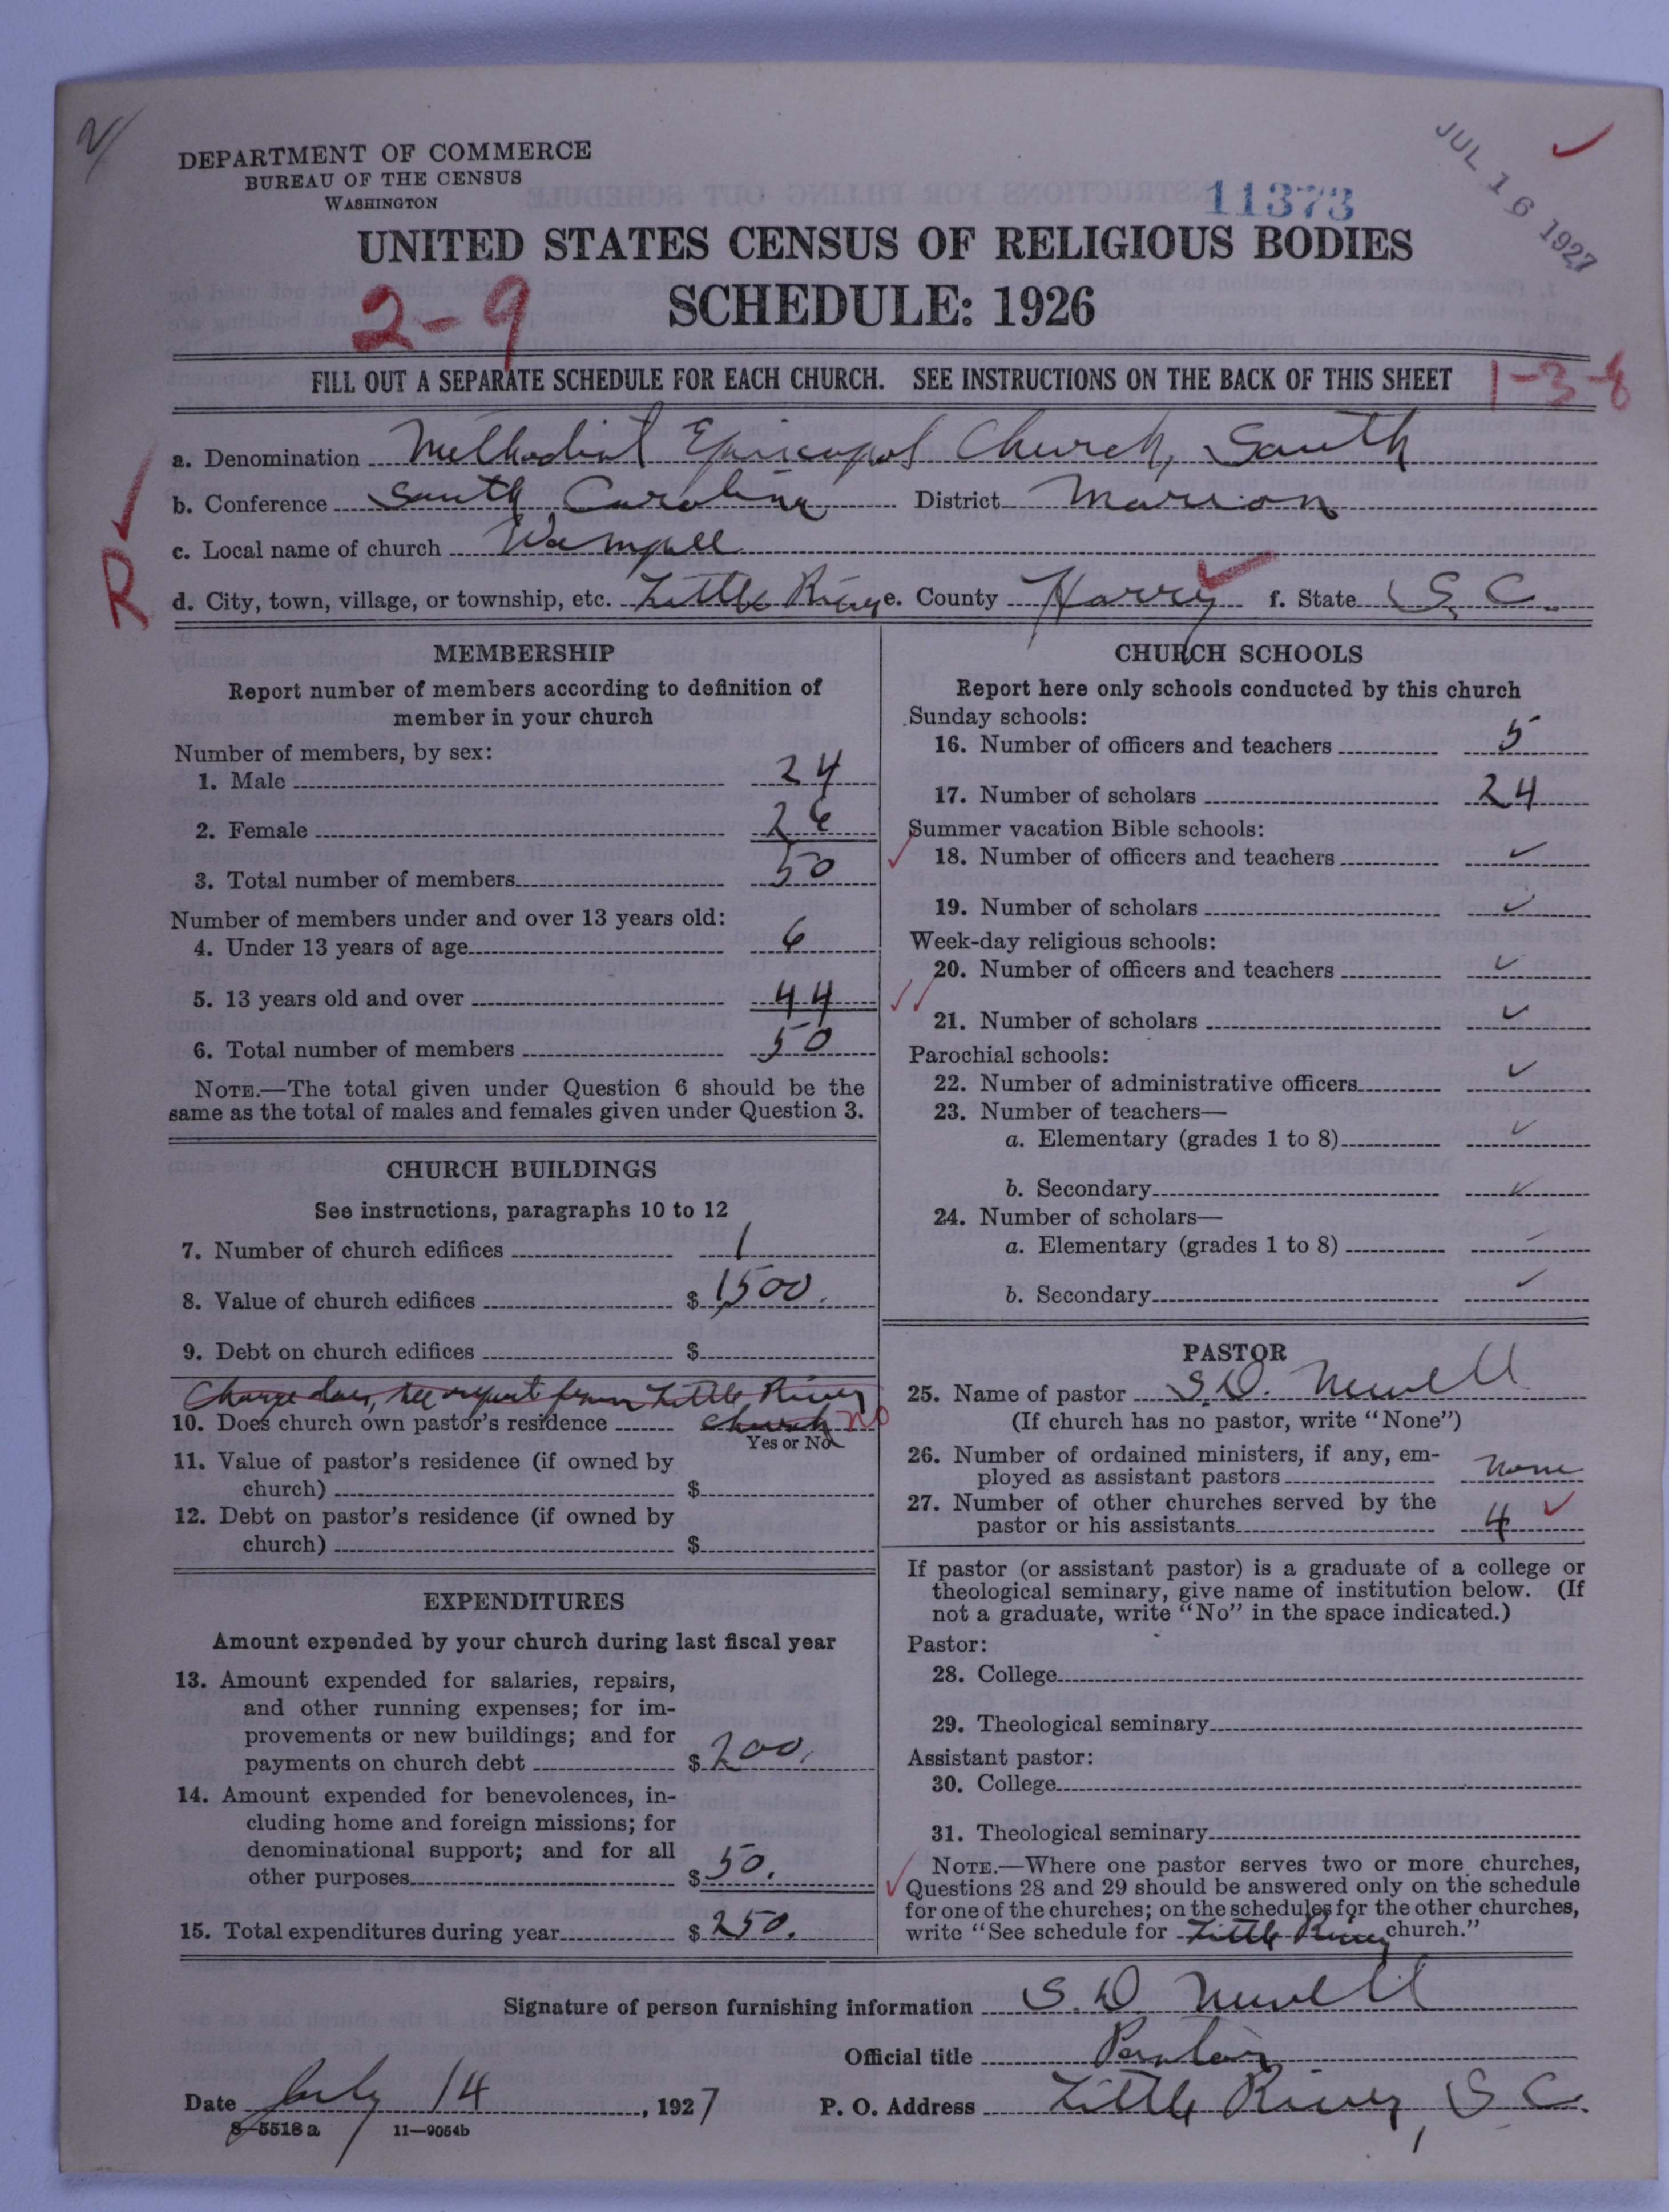 DEPARTMENT OF COMMERCE
BUREAU OF THE CENSUS
WASHINGTON
JUL 16 1927
11373
UNITED STATES CENSUS OF RELIGIOUS BODIES
2-9
SCHEDULE: 1926
FILL OUT A SEPARATE SCHEDULE FOR EACH CHURCH. SEE INSTRUCTIONS ON THE BACK OF THIS SHEET
1-3-8
R
a. Denomination Methodist Episcopal Church, South
b. Conference South Carolina District Marion
c. Local name of church Wampee
d. City, town, village, or township, etc. Little River e. County Horry f. State S. C.
MEMBERSHIP
Report number of members according to definition of
member in your church
Number of members, by sex:
1. Male 24
2. Female 26
3. Total number of members 50
Number of members under and over 13 years old:
4. Under 13 years of age 6
5. 13 years old and over 44
6. Total number of members 50
NOTE.—The total given under Question 6 should be the
same as the total of males and females given under Question 3.
CHURCH BUILDINGS
See instructions, paragraphs 10 to 12
7. Number of church edifices 1
8. Value of church edifices $ 1500.
9. Debt on church edifices $
Charge does, see report from Little River
10. Does church own pastor's residence church no
Yes or No
11. Value of pastor's residence (if owned by
church) $
12. Debt on pastor's residence (if owned by
church) $
EXPENDITURES
Amount expended by your church during last fiscal year
13. Amount expended for salaries, repairs,
and other running expenses; for im-
provements or new buildings; and for
payments on church debt $ 200.
14. Amount expended for benevolences, in-
cluding home and foreign missions; for
denominational support; and for all
other purposes $ 50.
15. Total expenditures during year $ 250.
CHURCH SCHOOLS
Report here only schools conducted by this church
Sunday schools:
16. Number of officers and teachers 5
17. Number of scholars 24
Summer vacation Bible schools:
18. Number of officers and teachers ✓
19. Number of scholars ✓
Week-day religious schools:
20. Number of officers and teachers ✓
21. Number of scholars ✓
Parochial schools:
22. Number of administrative officers ✓
23. Number of teachers—
a. Elementary (grades 1 to 8) ✓
b. Secondary ✓
24. Number of scholars—
a. Elementary (grades 1 to 8) ✓
b. Secondary ✓
PASTOR
25. Name of pastor S.D. Newell
(If church has no pastor, write "None")
26. Number of ordained ministers, if any, em-
ployed as assistant pastors none
27. Number of other churches served by the
pastor or his assistants 4 ✓
If pastor (or assistant pastor) is a graduate of a college or
theological seminary, give name of institution below. (If
not a graduate, write "No" in the space indicated.)
Pastor:
28. College
29. Theological seminary
Assistant pastor:
30. College
31. Theological seminary
NOTE.—Where one pastor serves two or more churches,
Questions 28 and 29 should be answered only on the schedule
for one of the churches; on the schedules for the other churches,
write "See schedule for Little River church."
Signature of person furnishing information S. D. Newell
Official title Pastor
Date July 14, 1927 P. O. Address Little River, S. C.
8-5518 a 11-9054b